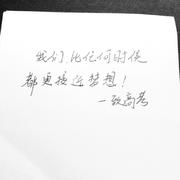 我们，比任何时候
都更接近梦想！
—致高考